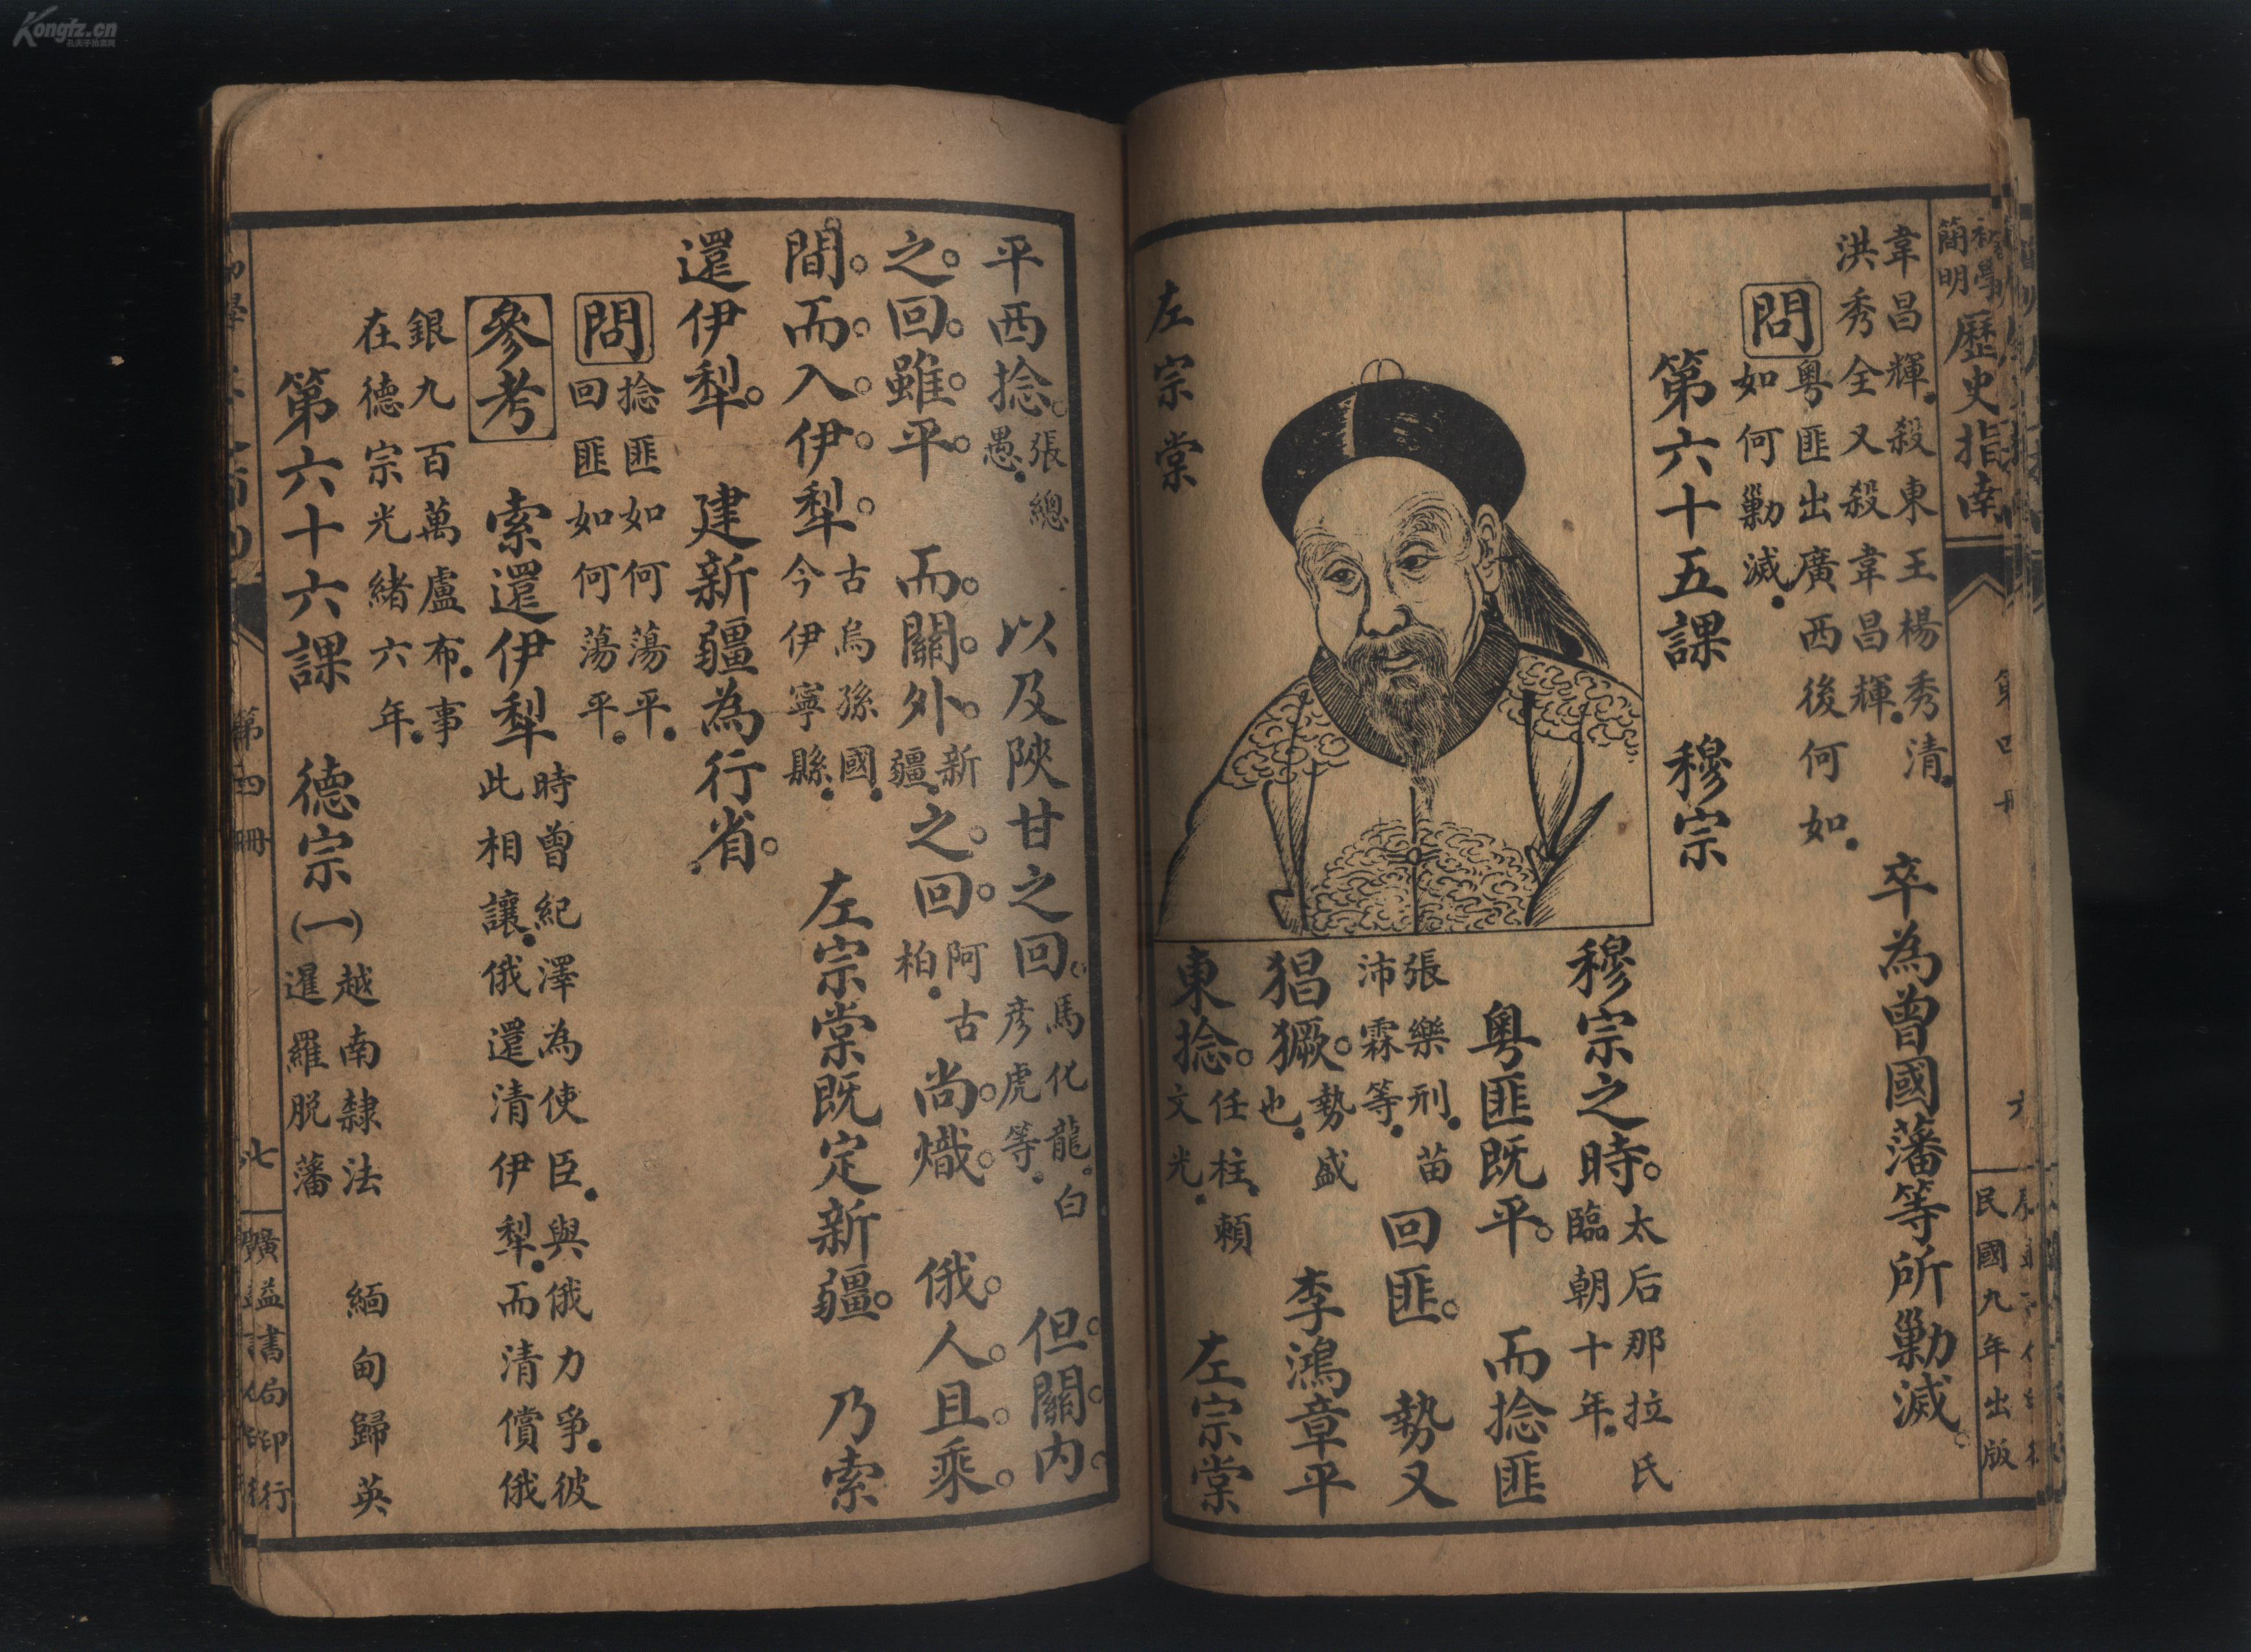 Kongfz.cn
孔夫子拍卖网
初學
簡明
歷史指南
第四冊
民國九年出版
韋昌輝殺東王楊秀清
洪秀全又殺韋昌輝
卒為曾國藩等所勦滅
問
粵匪出廣西後何如
如何勦滅
第六十五課 穆宗
左宗棠
穆宗之時 太后那拉氏
臨朝十年
粵匪既平 而捻匪
張樂刑苗
沛霖等 回匪 勢又
猖獗 勢盛
也 李鴻章平
東捻 任柱賴
文光 左宗棠
平西捻 張總
愚 以及陝甘之回 馬化龍白
彦虎等 但關內
之回雖平 而關外 新
疆 之回 阿古
柏 尚熾 俄人且乘
間而入伊犁 古烏孫國
今伊寧縣 左宗棠既定新疆 乃索
還伊犁 建新疆為行省
問
捻匪如何蕩平
回匪如何蕩平
參考
索還伊犁 時曾紀澤為使臣與俄力爭彼
此相讓俄還清伊犁而清償俄
銀九百萬盧布事
在德宗光緒六年
第六十六課 德宗(一) 越南隸法 緬甸歸英
暹羅脱藩
第四冊
七
廣益書局印行